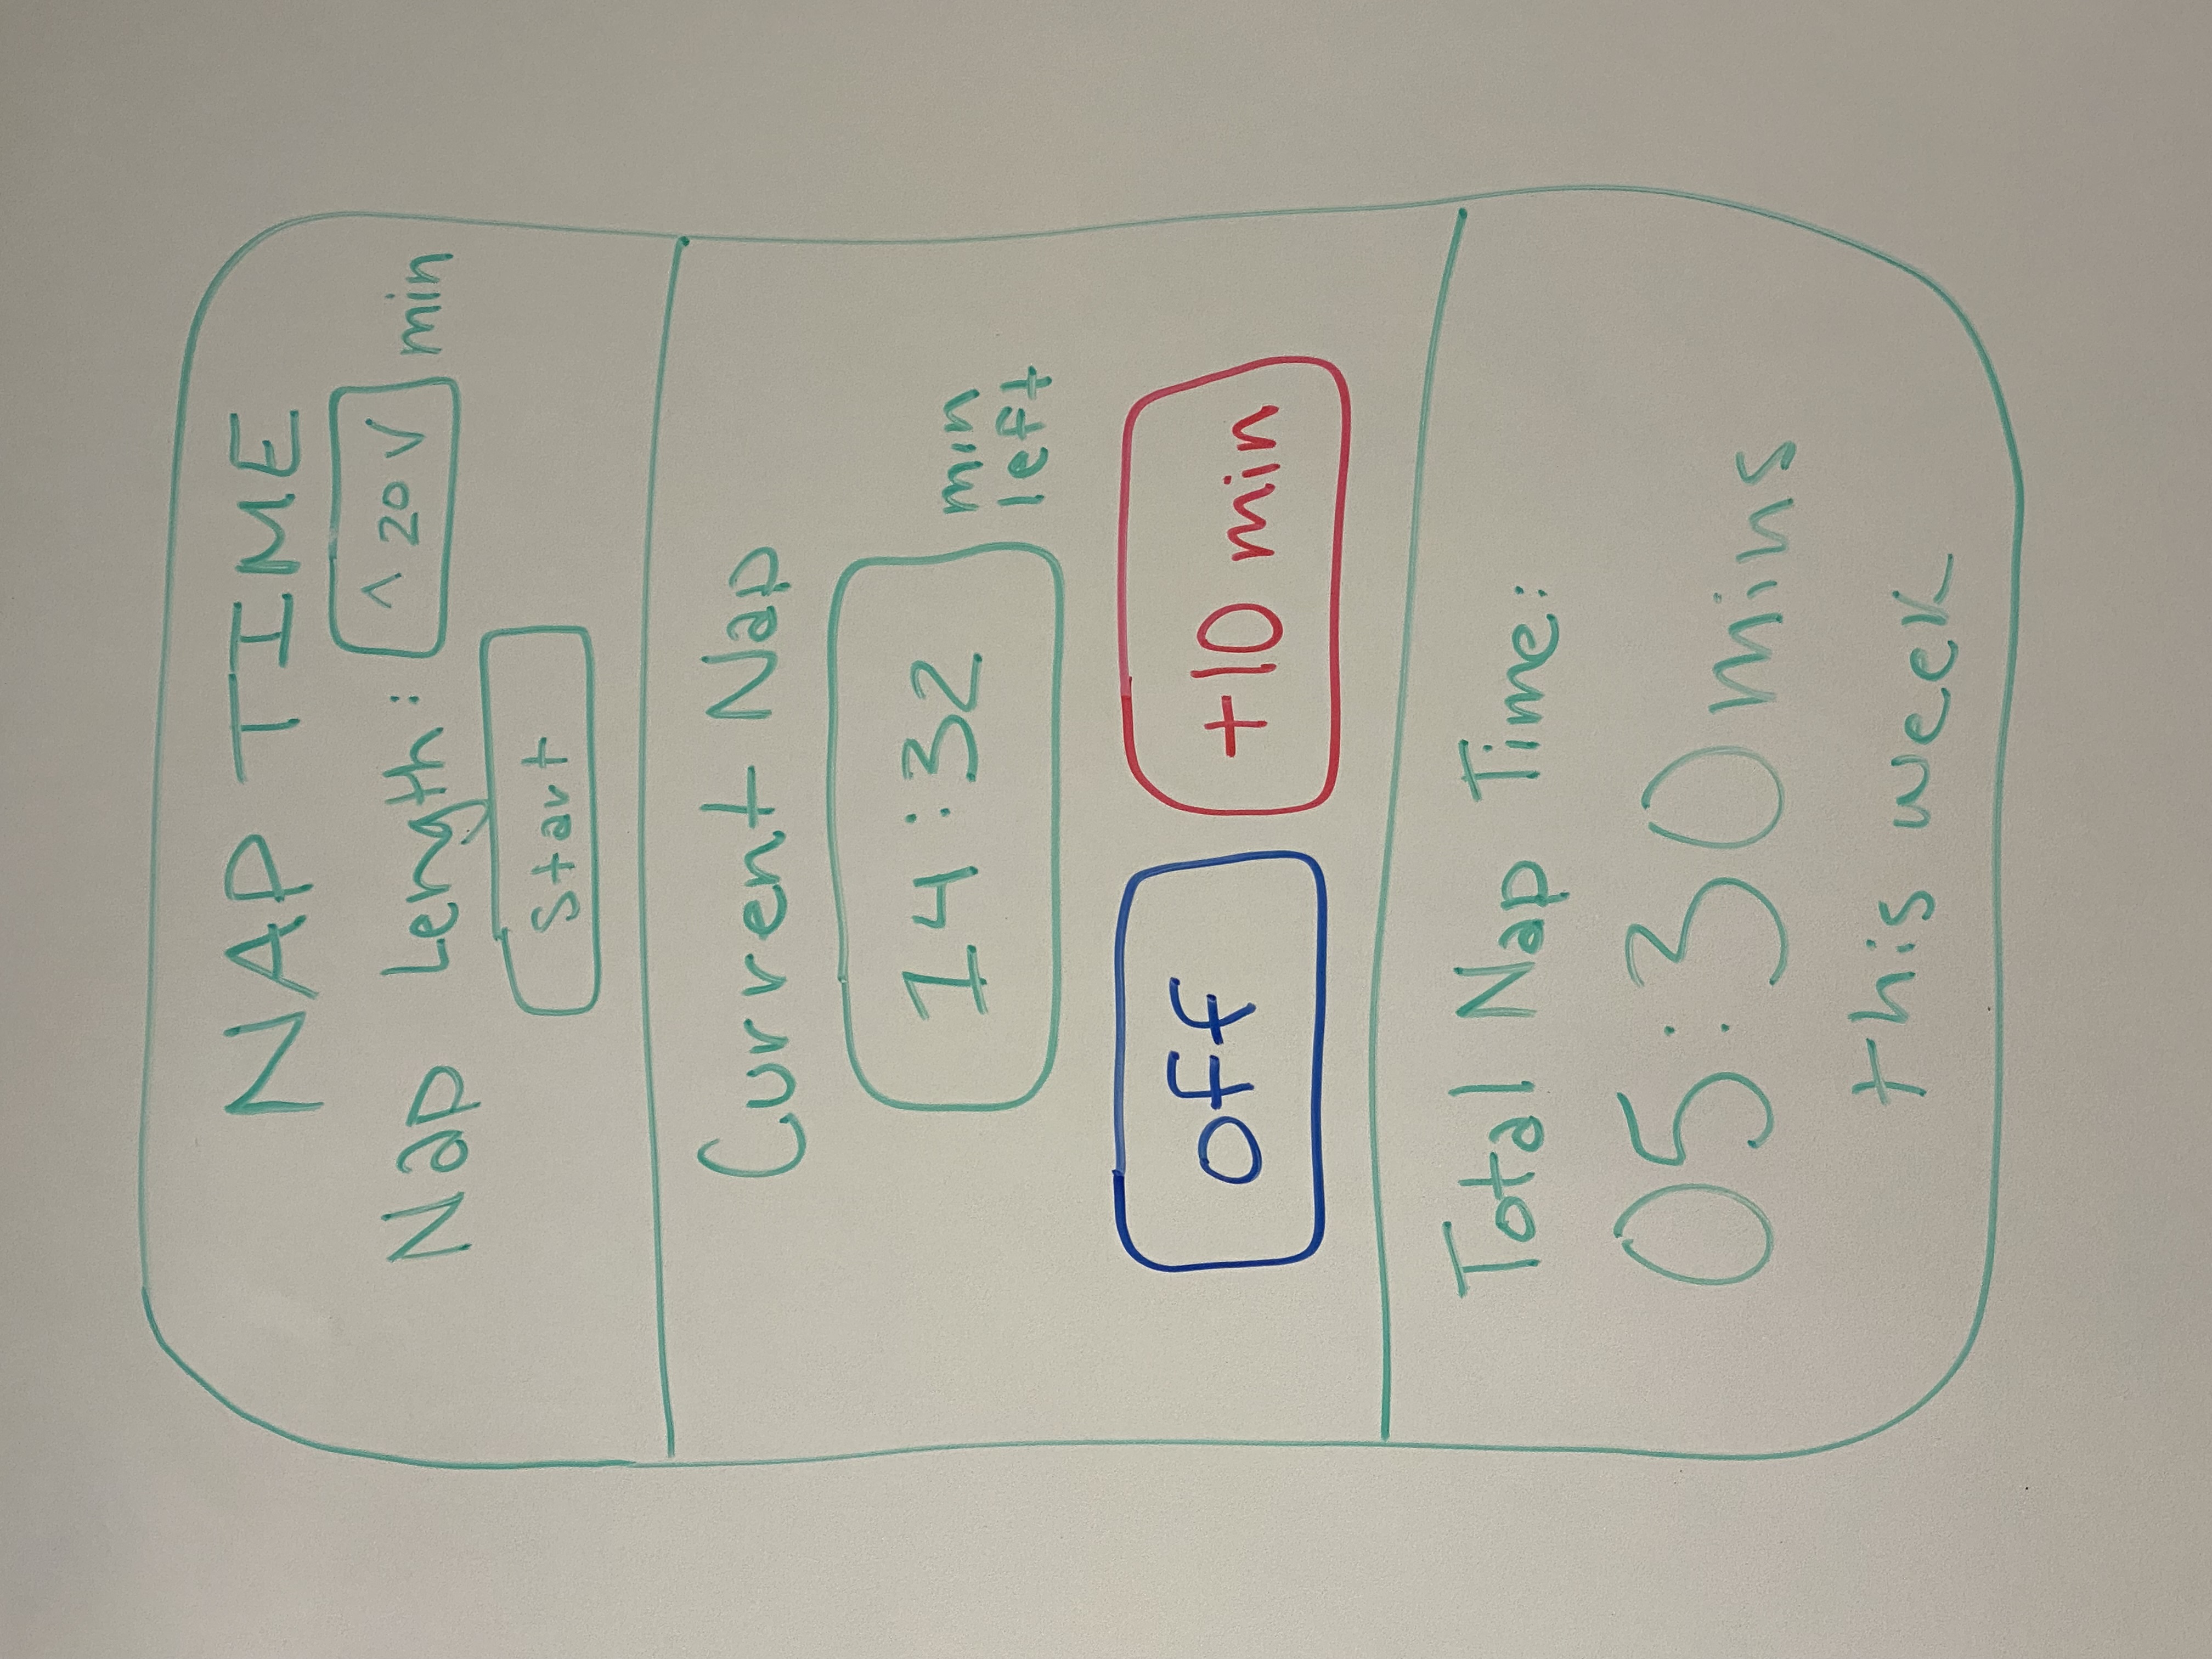 NAP TIME
Nap Length: ^ 20 V min
Start
Current Nap
14:32 min left
off
+10 min
Total Nap Time:
05:30 mins
this week